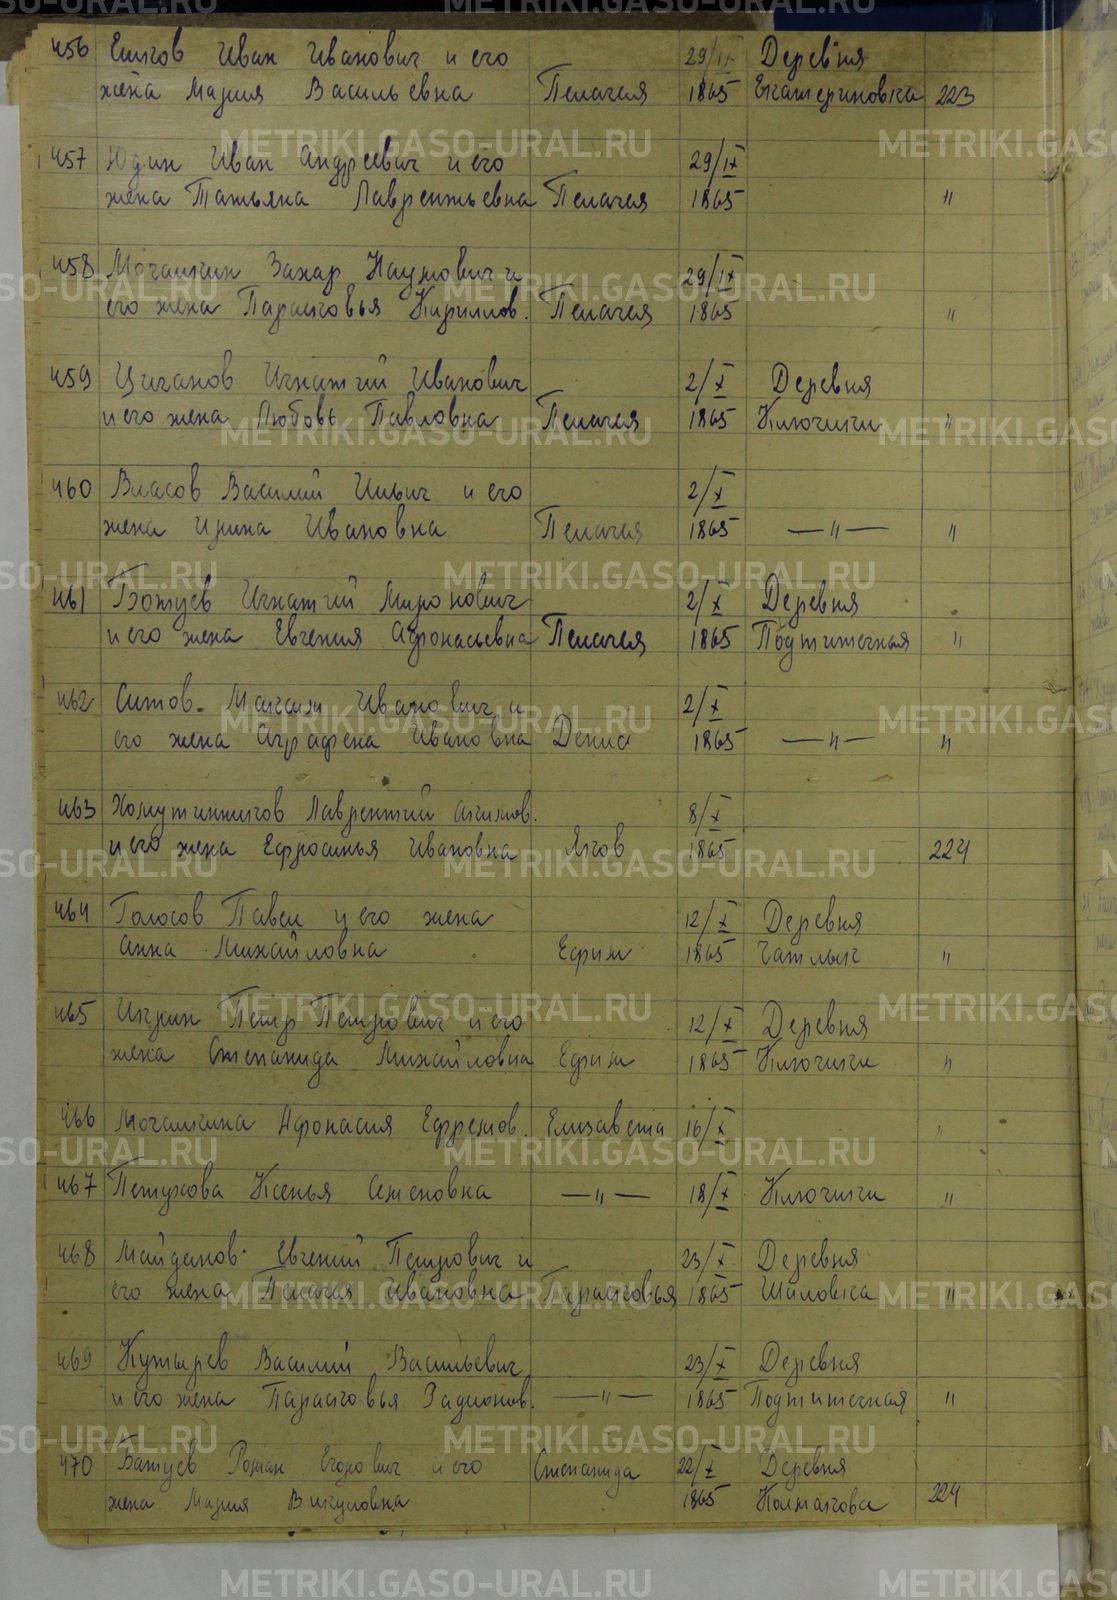 456 Ешков Иван Иванович и его 29/IX Деревня
жена Мария Васильевна Пелагея 1865 Екатериновка 223
457 Юдин Иван Андреевич и его 29/IX
жена Татьяна Лаврентьевна Пелагея 1865 "
458 Мочалкин Захар Наумович и 29/IX
его жена Парасковья Кириллов. Пелагея 1865 "
459 Циганов Игнатий Иванович 2/X Деревня
и его жена Любовь Павловна Пелагея 1865 Ключики "
460 Власов Василий Ильич и его 2/X
жена Ирина Ивановна Пелагея 1865 —"— "
461 Ботуев Игнатий Миронович 2/X Деревня
и его жена Евгения Афонасьевна Пелагея 1865 Подтипечная "
462 Ситов. Иванович и 2/X
его жена Аграфена Ивановна Денис 1865 —"— "
463 Лаврентий 8/X
и его жена Ефросинья Ивановна Яков 1865 224
464 Голосов Павел и его жена 12/X Деревня
Анна Михайловна Ефим 1865 Чатлык "
465 Петр Петрович и его 12/X Деревня
жена Степанида Михайловна Ефим 1865 Ключики "
466 Мочалкина Афонасия Ефремов. Елизавета 16/X "
467 Петухова Ксенья Семеновна —"— 18/X Ключики "
468 Майданов Евгений Петрович и 23/X Деревня
его жена Пелагея Ивановна Парасковья 1865 Шиловка "
469 Кутырев Василий Васильевич 23/X Деревня
и его жена Парасковья Радионов. —"— 1865 Подтипечная "
470 Батуев Роман Егорович и его Степанида 22/X Деревня
жена Мария Викуловна 1865 Колмакова 224
METRIKI.GASO-URAL.RU